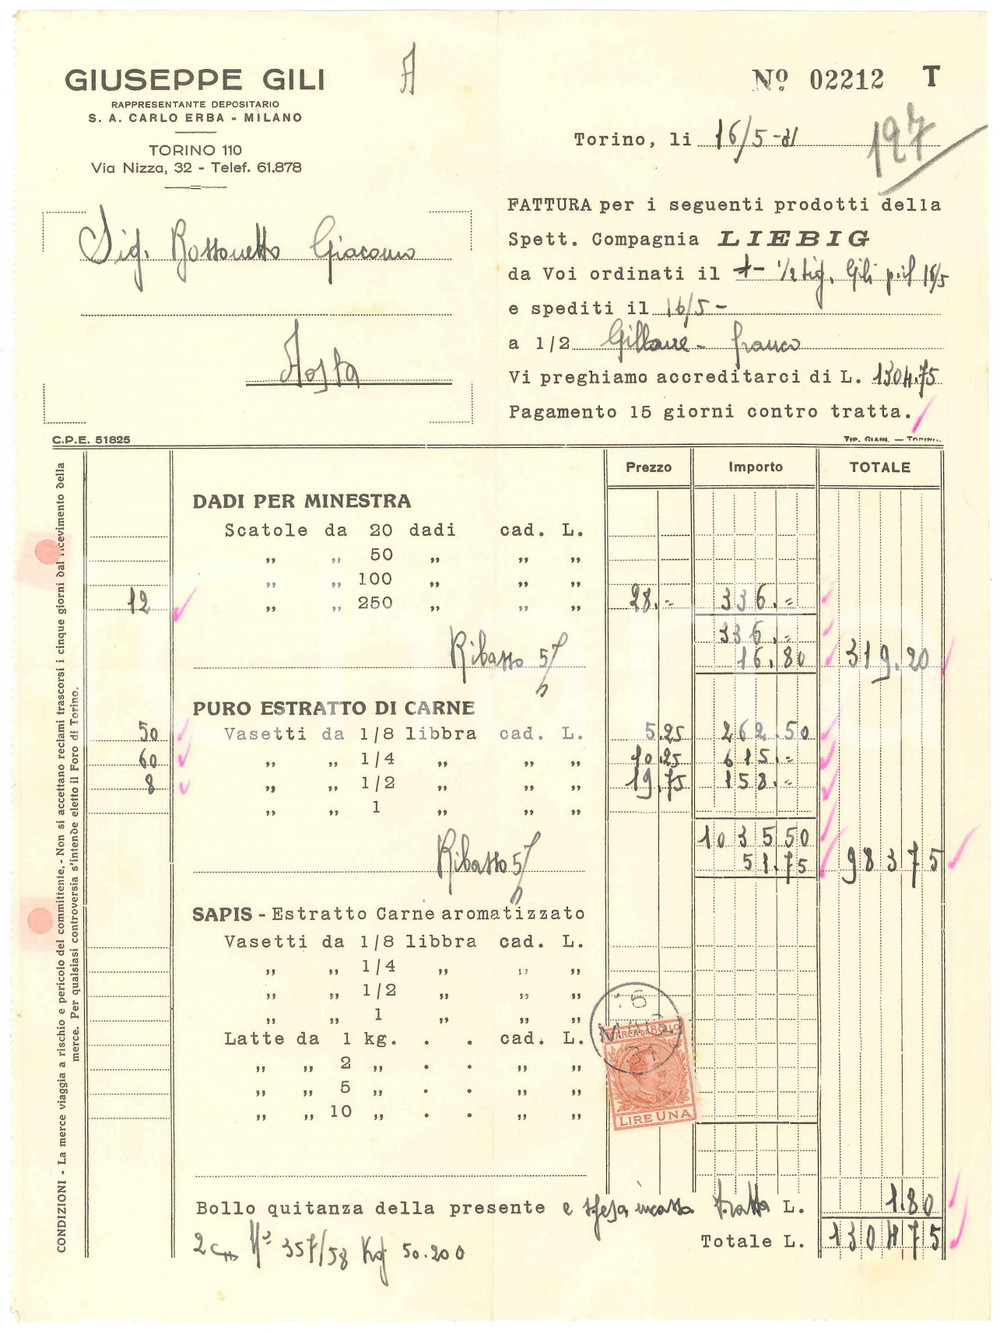 GIUSEPPE GILI
RAPPRESENTANTE DEPOSITARIO
S. A. CARLO ERBA - MILANO
TORINO 110
Via Nizza, 32 - Telef. 61.878
A
Nº 02212 T
Torino, li 16/5-31
127
Sig. Rossonetto Giacomo
Aosta
FATTURA per i seguenti prodotti della
Spett. Compagnia LIEBIG
da Voi ordinati il 1/2 Sig. Gili 16/5
e spediti il 16/5-
a 1/2 franco
Vi preghiamo accreditarci di L. 1304.75
Pagamento 15 giorni contro tratta.
C.P.E. 51825
Prezzo Importo TOTALE
DADI PER MINESTRA
Scatole da 20 dadi cad. L.
„ „ 50 „ „ „
„ „ 100 „ „ „
12 „ „ 250 „ „ „ 28.= 336.=
336.=
Ribasso 5% 16.80 319.20
PURO ESTRATTO DI CARNE
50 Vasetti da 1/8 libbra cad. L. 5.25 262.50
60 „ „ 1/4 „ „ „ 10.25 615.=
8 „ „ 1/2 „ „ „ 19.75 158.=
„ „ 1 „ „ „
1035 50
Ribasso 5% 51.75 983 75
SAPIS - Estratto Carne aromatizzato
Vasetti da 1/8 libbra cad. L.
„ „ 1/4 „ „ „
„ „ 1/2 „ „ „
„ „ 1 „ „ „
Latte da 1 kg. . . cad. L.
„ „ 2 „ . . „ „
„ „ 5 „ . . „ „
„ „ 10 „ . . „ „
16
31
LIRE UNA
Bollo quitanza della presente e spesa incasso tratta L. 1.80
Totale L. 1304 75
Nº 357/58 Kg 50.200
CONDIZIONI - La merce viaggia a rischio e pericolo del committente. - Non si accettano reclami trascorsi i cinque giorni dal ricevimento della
merce. Per qualsiasi controversia s'intende eletto il Foro di Torino.